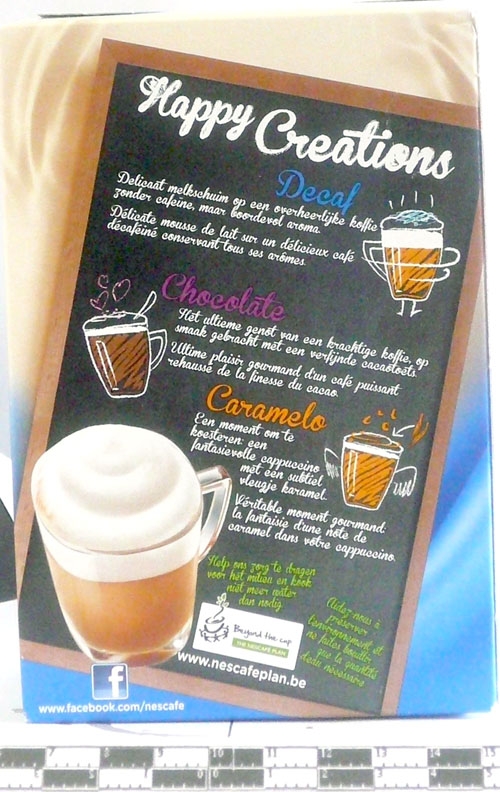 Happy Creations
Decaf
Delicaat melkschuim op een overheerlijke koffie
zonder cafeïne, maar boordevol aroma.
Délicate mousse de lait sur un délicieux café
décaféiné conservant tous ses arômes.
Chocolate
Hét ultieme genot van een krachtige koffie, op
smaak gebracht met een verfijnde cacaotoets.
Ultime plaisir gourmand d'un café puissant
rehaussé de la finesse du cacao.
Caramelo
Een moment om te
koesteren: een
fantasievolle cappuccino
mét een subtiel
vleugje karamel.
Véritable moment gourmand:
la fantaisie d'une note de
caramel dans votre cappuccino.
Help ons zorg te dragen
voor het milieu en kook
niet meer water
dan nodig.
Aidez-nous à
préserver
l'environnement et
ne faites bouillir
que la quantité
d'eau nécessaire.
Beyond the cup
THE NESCAFÉ PLAN
www.nescafeplan.be
f
www.facebook.com/nescafe
7 8 9 10 11 12 13 14 15
6 5 4 3 2 1 0 1 2 3 4 5